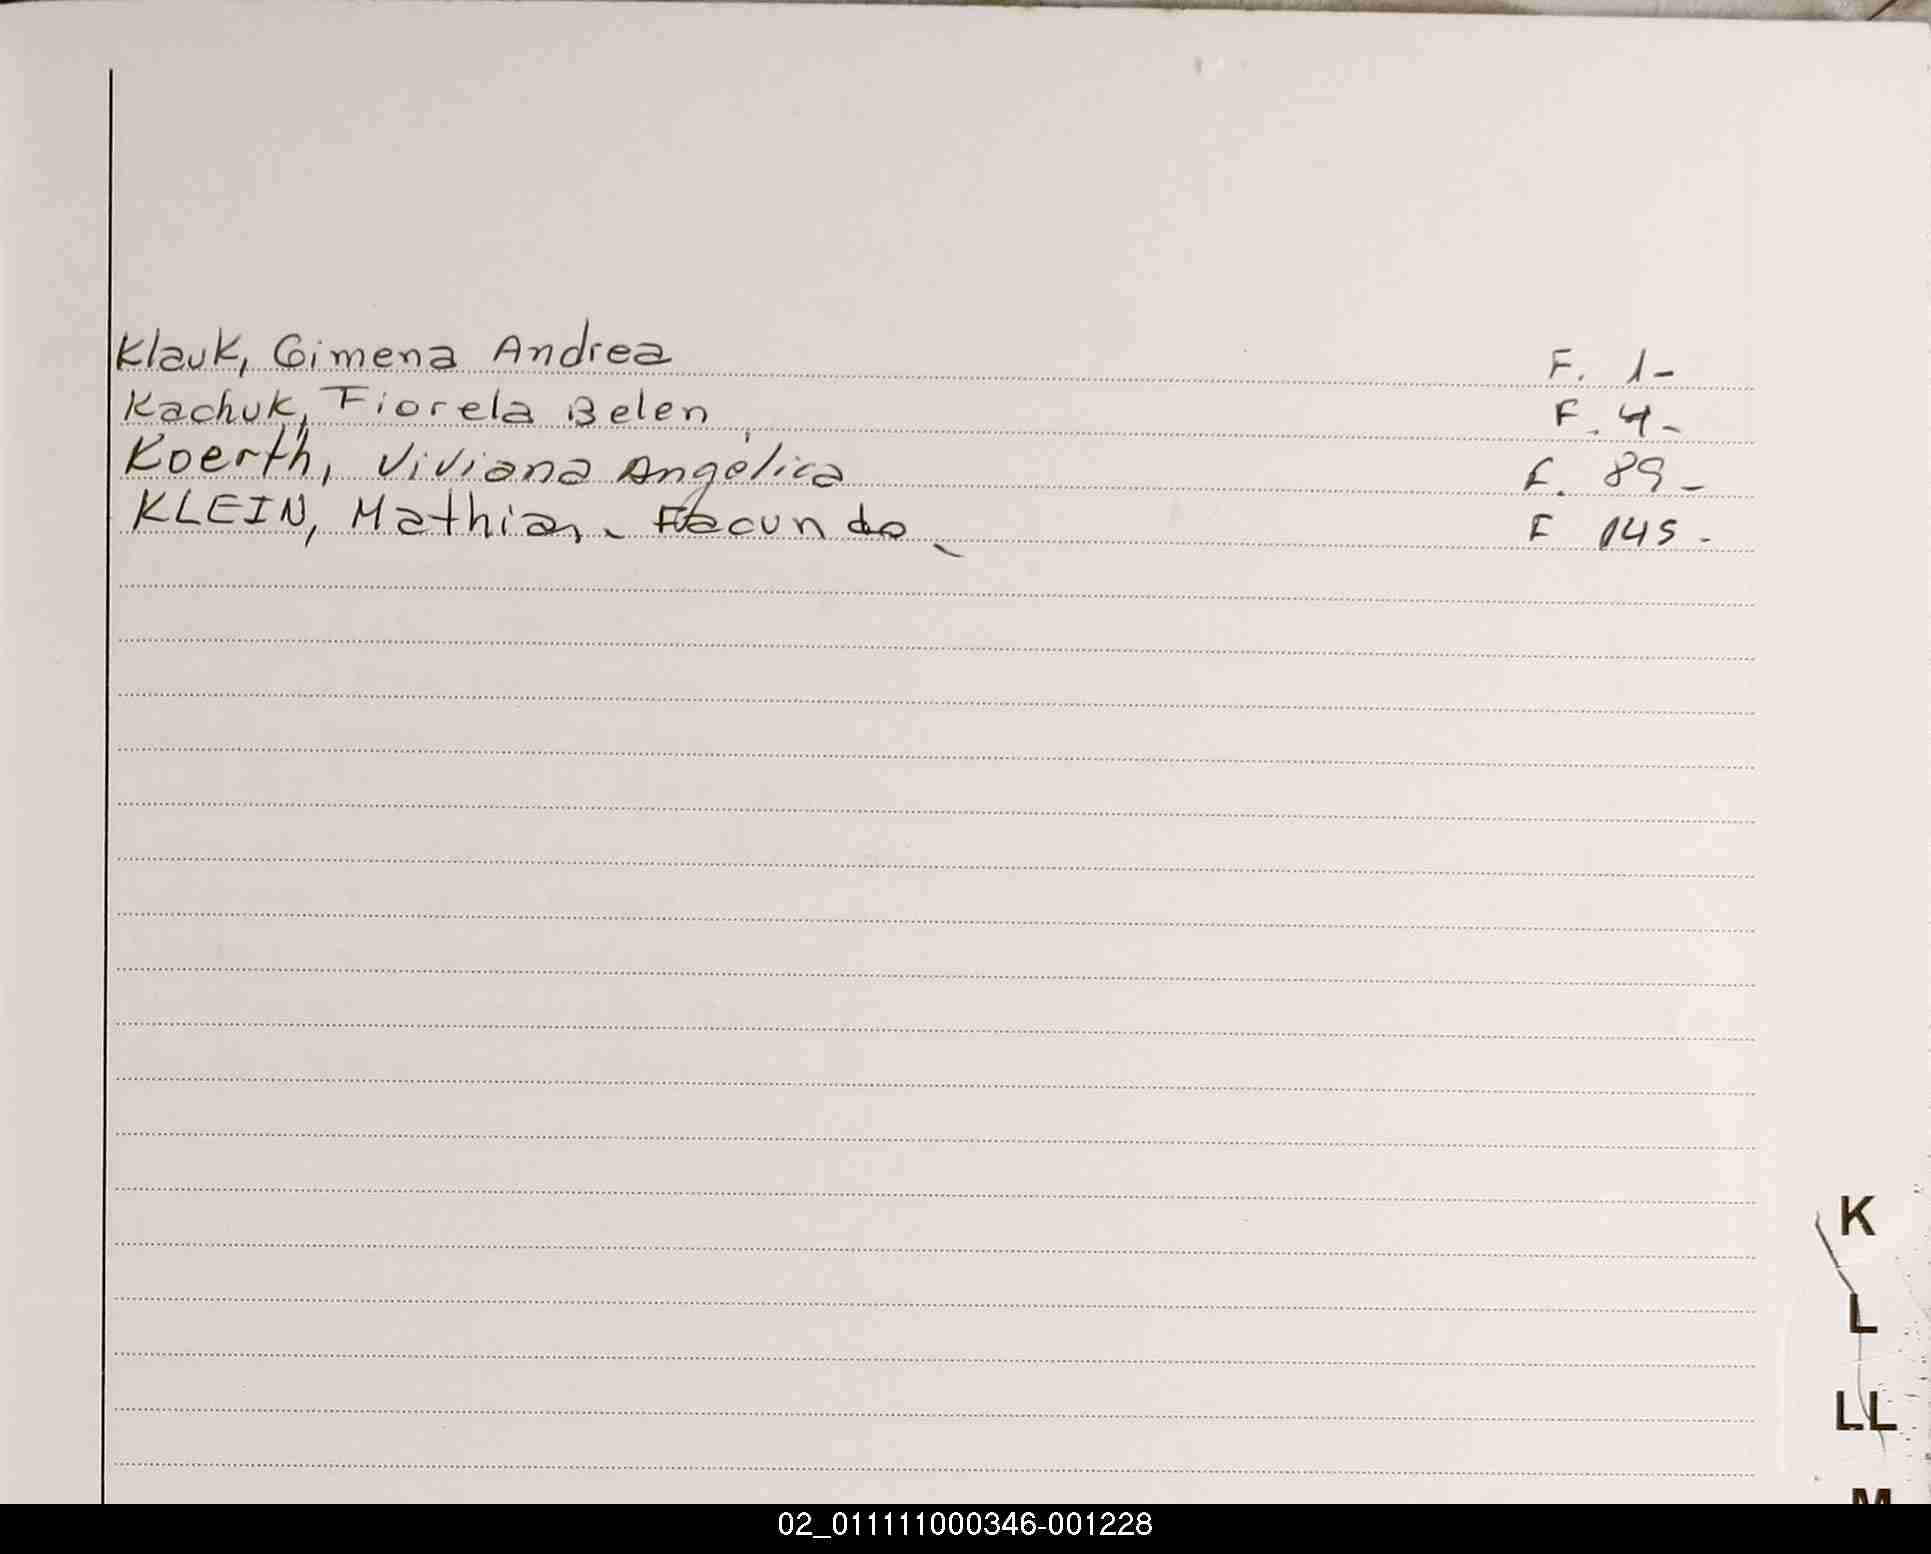 Klauk, Gimena Andrea F. 1-
Kachuk, Fiorela Belen F. 4-
Koerth, Viviana Angélica F. 89-
KLEIN, Mathias - Facundo - F 145-
K
L
LL
M
02_011111000346-001228